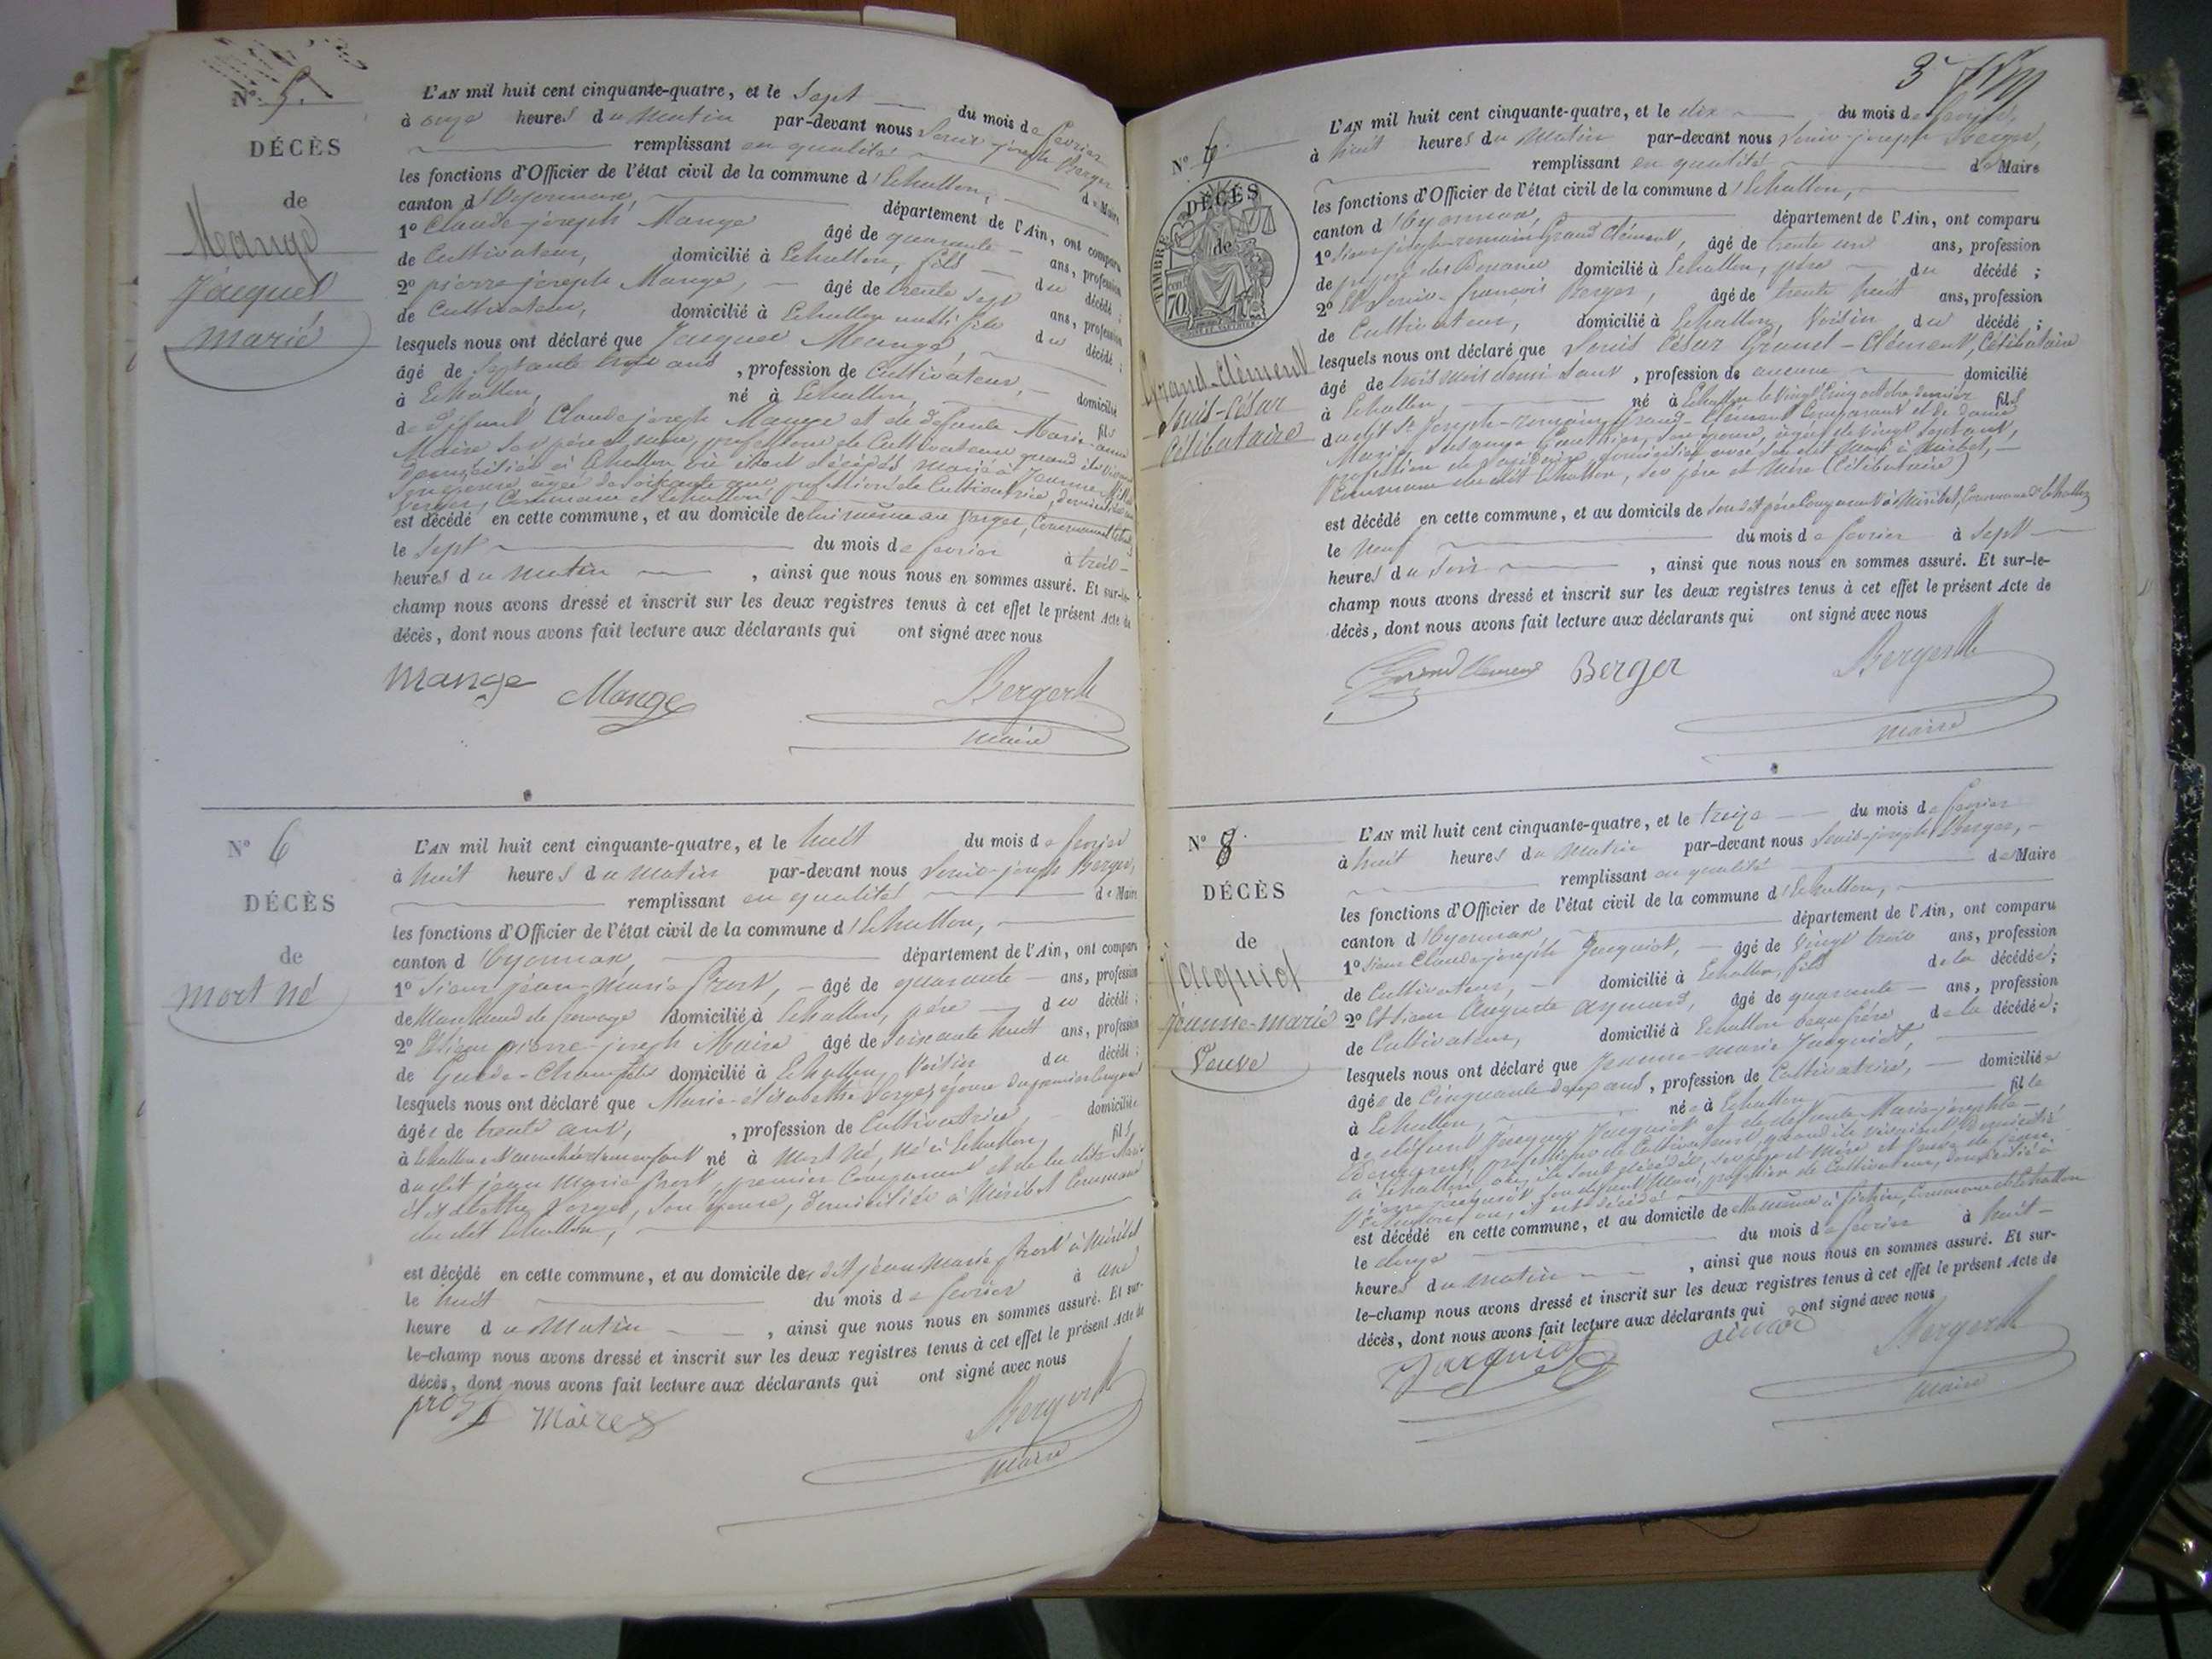 N° 5.
DÉCÈS
de
Mange
Jacques
marié
L'AN mil huit cent cinquante-quatre, et le Sept du mois de fevrier
à onze heures du Matin par-devant nous Louis-joseph Berger
remplissant en qualité de Maire
les fonctions d'Officier de l'état civil de la commune d'Echallon,
canton d'Oyonnax, département de l'Ain, ont comparu
1° Claude-joseph Mange âgé de quarante ans, profession
de Cultivateur, domicilié à Echallon, fils du décédé ;
2° pierre-joseph Mange, âgé de trente sept ans, profession
de Cultivateur, domicilié à Echallon aussi fils du décédé ;
lesquels nous ont déclaré que Jacques Mange,
âgé de Septante trois ans, profession de Cultivateur, domicilié
à Echallon, né à Echallon, fils
de défunt Claude joseph Mange et de defunte Marie-anne
Maire ses père et mère, profession de Cultivateurs quand ils vivaient
domiciliés à Echallon où ils sont décédés marié à Jeanne
son épouse agée de soixante ans, profession de Cultivatrice, domiciliée au
Verger, Commune d'Echallon
est décédé en cette commune, et au domicile de lui même au Verger, Commune d'Echallon
le Sept du mois de fevrier à trois
heures du matin, ainsi que nous nous en sommes assuré. Et sur-le-
champ nous avons dressé et inscrit sur les deux registres tenus à cet effet le présent Acte de
décès, dont nous avons fait lecture aux déclarants qui ont signé avec nous
Mange Mange Berger
Maire
N° 6
DÉCÈS
de
Mort né
L'AN mil huit cent cinquante-quatre, et le huit du mois de fevrier
à huit heures du Matin par-devant nous Louis-joseph Berger,
remplissant en qualité de Maire
les fonctions d'Officier de l'état civil de la commune d'Echallon,
canton d'Oyonnax, département de l'Ain, ont comparu
1° Sieur jean-Marie Prost, âgé de quarante ans, profession
de Marchand de fromage domicilié à Echallon, père du décédé ;
2° Et Sieur pierre-joseph Maire âgé de Soixante huit ans, profession
de Garde-Champêtre domicilié à Echallon, Voisin du décédé ;
lesquels nous ont déclaré que Marie-élisabethe Verger, épouse du premier Comparant
âgée de trente ans, profession de Cultivatrice, domiciliée
à Echallon est accouchée d'un enfant né à Mort Né, Né à Echallon, fils
du dit jean Marie Prost, premier Comparant et de la dite Marie
élisabethe Verger, Son épouse, domiciliée à Miribel Commune
du dit Echallon,
est décédé en cette commune, et au domicile de dit jean Marie Prost à Miribel
le huit du mois de fevrier à une
heure du Matin, ainsi que nous nous en sommes assuré. Et sur-
le-champ nous avons dressé et inscrit sur les deux registres tenus à cet effet le présent Acte de
décès, dont nous avons fait lecture aux déclarants qui ont signé avec nous
prost Maire Berger
Maire
3
N°
TIMBRE
70
DÉCÈS
de
Grand-Clément
Louis-César
Célibataire
L'AN mil huit cent cinquante-quatre, et le dix du mois de fevrier,
à huit heures du Matin par-devant nous Louis-joseph Berger,
remplissant en qualité de Maire
les fonctions d'Officier de l'état civil de la commune d'Echallon,
canton d'Oyonnax, département de l'Ain, ont comparu
1° Sieur joseph-romain Grand Clément, âgé de trente un ans, profession
de préposé des Douanes domicilié à Echallon, père du décédé ;
2° Et Louis-françois Berger, âgé de trente huit ans, profession
de Cultivateur, domicilié à Echallon, Voisin du décédé ;
lesquels nous ont déclaré que Louis César Grand-Clément, Célibataire
âgé de trois mois demi, profession de aucune domicilié
à Echallon, né à Echallon le Vingt Cinq octobre dernier fils
du dit Sr Joseph-romain Grand-Clément Comparant et de Dame
Marie, son épouse, agée de vingt sept ans,
profession de domiciliée avec son dit Mari à Miribel,
Commune du dit Echallon, ses père et Mère (Célibataire)
est décédé en cette commune, et au domicile de Son dit père Comparant à Miribel, Commune d'Echallon
le Neuf du mois de fevrier à Sept
heures du Soir, ainsi que nous nous en sommes assuré. Et sur-le-
champ nous avons dressé et inscrit sur les deux registres tenus à cet effet le présent Acte de
décès, dont nous avons fait lecture aux déclarants qui ont signé avec nous
Grand Clement Berger Berger
Maire
N° 8
DÉCÈS
de
Jacquiot
Jeanne-marie
Veuve
L'AN mil huit cent cinquante-quatre, et le treize du mois de fevrier
à huit heures du Matin par-devant nous Louis-joseph Berger,
remplissant en qualité de Maire
les fonctions d'Officier de l'état civil de la commune d'Echallon,
canton d'Oyonnax département de l'Ain, ont comparu
1° Sieur Claude joseph Jacquiot, âgé de Vingt trois ans, profession
de Cultivateur, domicilié à Echallon, fils de la décédée ;
2° Et Sieur Auguste Aymard, âgé de quarante ans, profession
de Cultivateur, domicilié à Echallon beau frère de la décédée ;
lesquels nous ont déclaré que Jeanne-marie Jacquiot,
âgée de Cinquante deux ans, profession de Cultivatrice, domiciliée
à Echallon, née à Echallon fille
de défunt Jacques Jacquiot et de défunte Marie-josephte
profession de Cultivateurs, quand ils vivaient domiciliés
à Echallon où ils sont décédés, ses père et Mère et Veuve de jean
pierre Jacquiot son défunt Mari, profession de Cultivateur, domicilié à
Echallon, où il est décédé
est décédé en cette commune, et au domicile de elle même à Commune d'Echallon
le douze du mois de fevrier à huit
heures du matin, ainsi que nous nous en sommes assuré. Et sur-
le-champ nous avons dressé et inscrit sur les deux registres tenus à cet effet le présent Acte de
décès, dont nous avons fait lecture aux déclarants qui ont signé avec nous
Jacquiot Berger
Maire